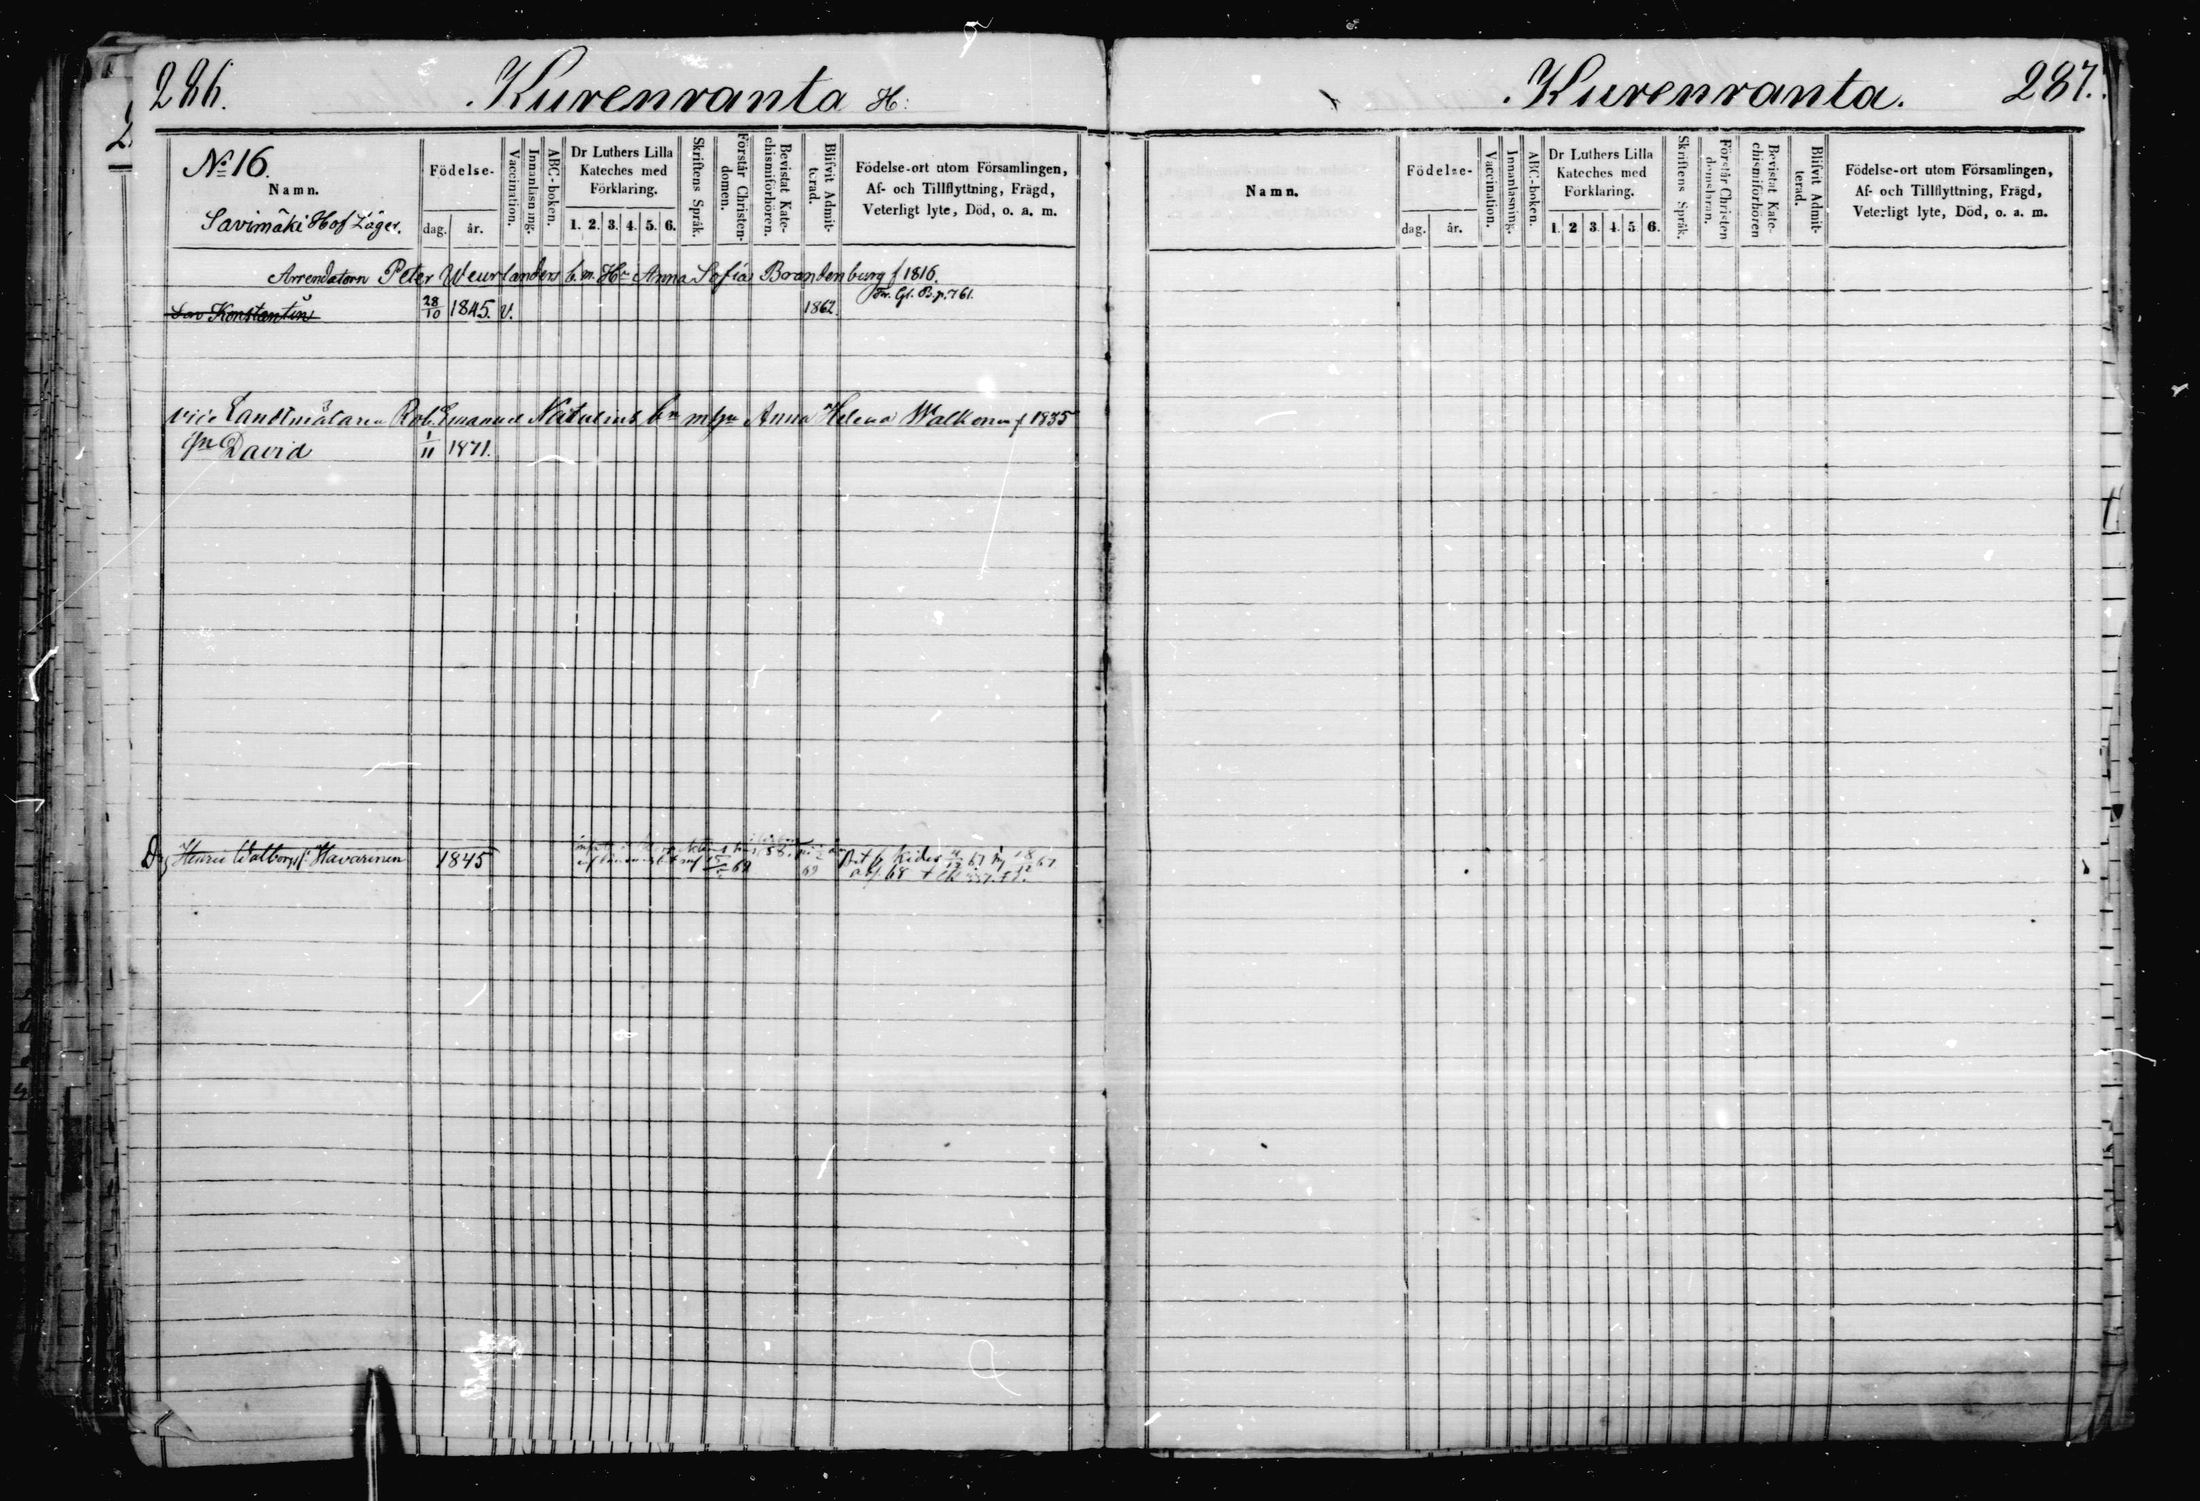 286.
Kurenranta H:
No 16.
Namn.
Savimäki Hof Läger.
Födelse-
dag.
år.
Vaccination.
Innanläsning.
ABC-boken.
Dr Luthers Lilla
Kateches med
Förklaring.
1. 2. 3. 4. 5. 6.
Skriftens Språk.
Förstår Christen-
domen.
Bevistat Kate-
chismiförhören.
Blifvit Admit-
terad.
Födelse-ort utom Församlingen,
Af- och Tillflyttning, Frägd,
Veterligt lyte, Död, o. a. m.
Arrendatorn Peter Weurlanders b. m. Hr Anna Sofias Brandenburg f 1816
Son Konstantin 28/10 1845. v. 1862. Fr. Gl. B. p. 761.
vice Landtmätaren Rob. Emanuel b. m. Anna Helena Walkonen f 1835
David 1/11 1871.
Dr Henric Walborgs f. Havarinen 1845
Kides 67
Kurenranta.
287.
Namn.
Födelse-
dag.
år.
Vaccination.
Innanläsning.
ABC-boken.
Dr Luthers Lilla
Kateches med
Förklaring.
1. 2. 3. 4. 5. 6.
Skriftens Språk.
Förstår Christen
domsläran.
Bevistat Kate-
chismiförhören
Blifvit Admit-
terad.
Födelse-ort utom Församlingen,
Af- och Tillflyttning, Frägd,
Veterligt lyte, Död, o. a. m.